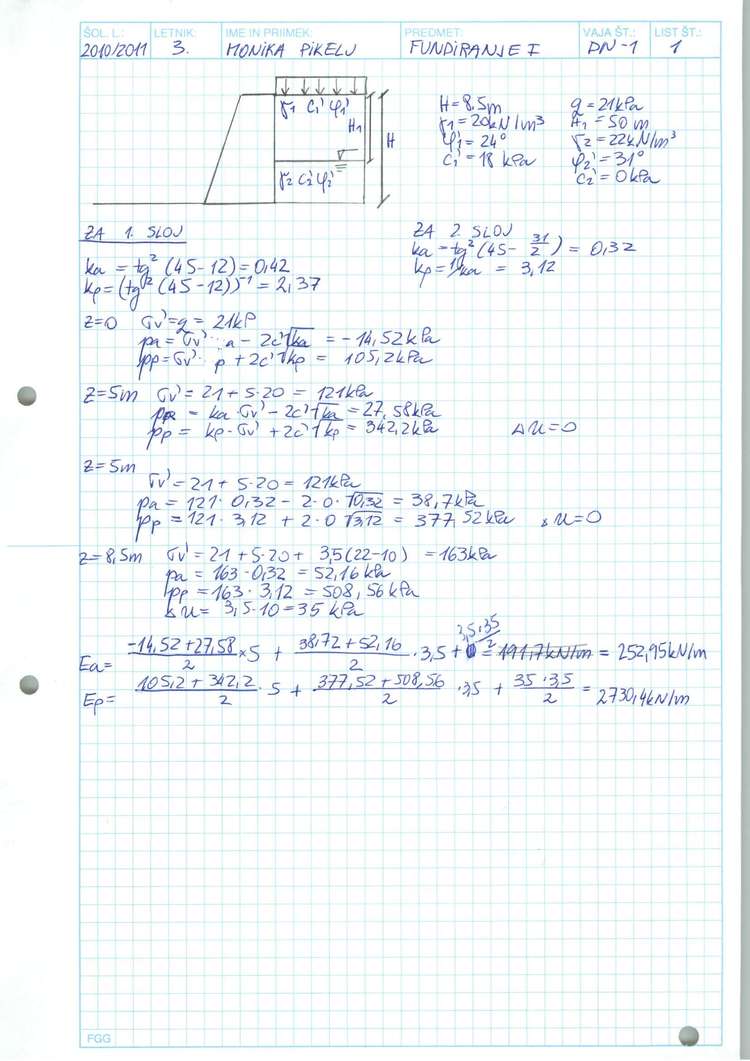 ŠOL. L.: LETNIK: IME IN PRIIMEK: PREDMET: VAJA ŠT.: LIST ŠT.:
2010/2011 3. MONIKA PIKELJ FUNDIRANJE I DN-1 1
γ1 c1' φ1'
H1
H
γ2 c2' φ2'
H = 8,5m q = 21kPa
γ1 = 20kN/m³ H1 = 50 m
φ1' = 24° γ2 = 22kN/m³
c1' = 18 kPa φ2' = 31°
c2' = 0kPa
ZA 1. SLOJ ZA 2. SLOJ
ka = tg² (45-12) = 0,42 ka = tg² (45- 31/2) = 0,32
kp = (tg² (45-12))⁻¹ = 2,37 kp = 1/ka = 3,12
z=0 σv' = q = 21kP
pa = σv' · a - 2c'√ka = -14,52kPa
pp = σv' · p + 2c'√kp = 105,2kPa
z=5m σv' = 21 + 5·20 = 121kPa
pa = ka·σv' - 2c'√ka = 27,58kPa
pp = kp·σv' + 2c'√kp = 342,2kPa Δu=0
z=5m
σv' = 21 + 5·20 = 121kPa
pa = 121 · 0,32 - 2·0·√0,32 = 38,7kPa
pp = 121 · 3,12 + 2·0 √3,12 = 377,52kPa Δu=0
z=8,5m σv' = 21 + 5·20 + 3,5(22-10) = 163kPa
pa = 163·0,32 = 52,16kPa
pp = 163 · 3,12 = 508,56kPa
Δu = 3,5·10 = 35 kPa
Ea = (-14,52+27,58)/2 × 5 + (38,72+52,16)/2 · 3,5 + 3,5·35/2 = 191,7kN/m = 252,95kN/m
Ep = (105,2+342,2)/2 · 5 + (377,52+508,56)/2 · 3,5 + (35·3,5)/2 = 2730,4kN/m
FGG